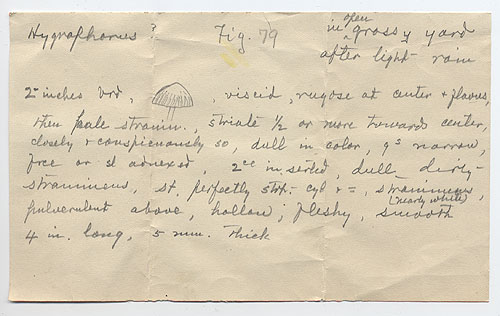 Hygrophorus ? Fig. 79 in open grassy yard
after light rain
2 inches brd, , viscid, rugose at center & flavus,
then pale stramin., striate 1/2 or more towards center,
closely & conspicuously so, dull in color, gs narrow,
free or sl adnexed, 2ce in serted, dull dirty-
stramineus, st. perfectly stst- cyl & =, stramineus,
(nearly white)
pulverulent above, hollow; fleshy, smooth
4 in. long, 5 mm. thick